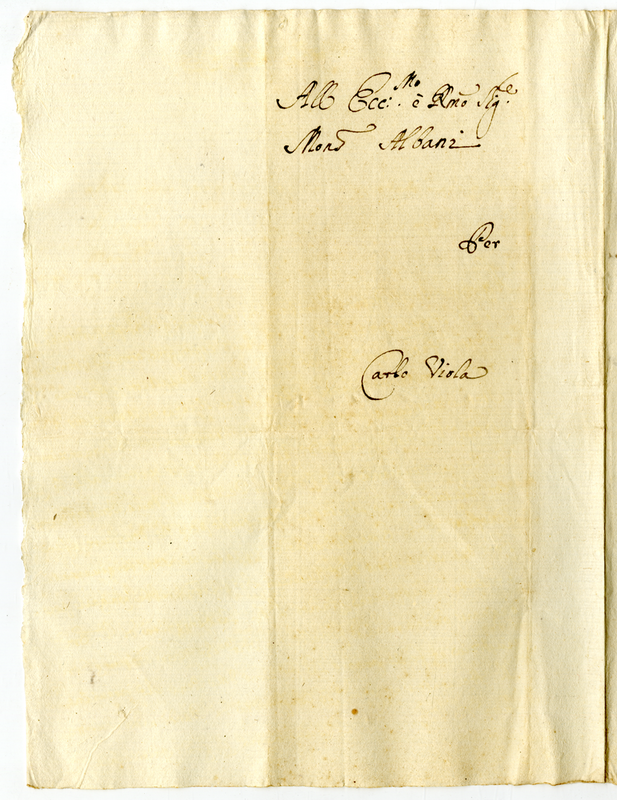 All Ecc:Mo è Rmo Sige:
Monsr Albani
Per
Carlo Viola